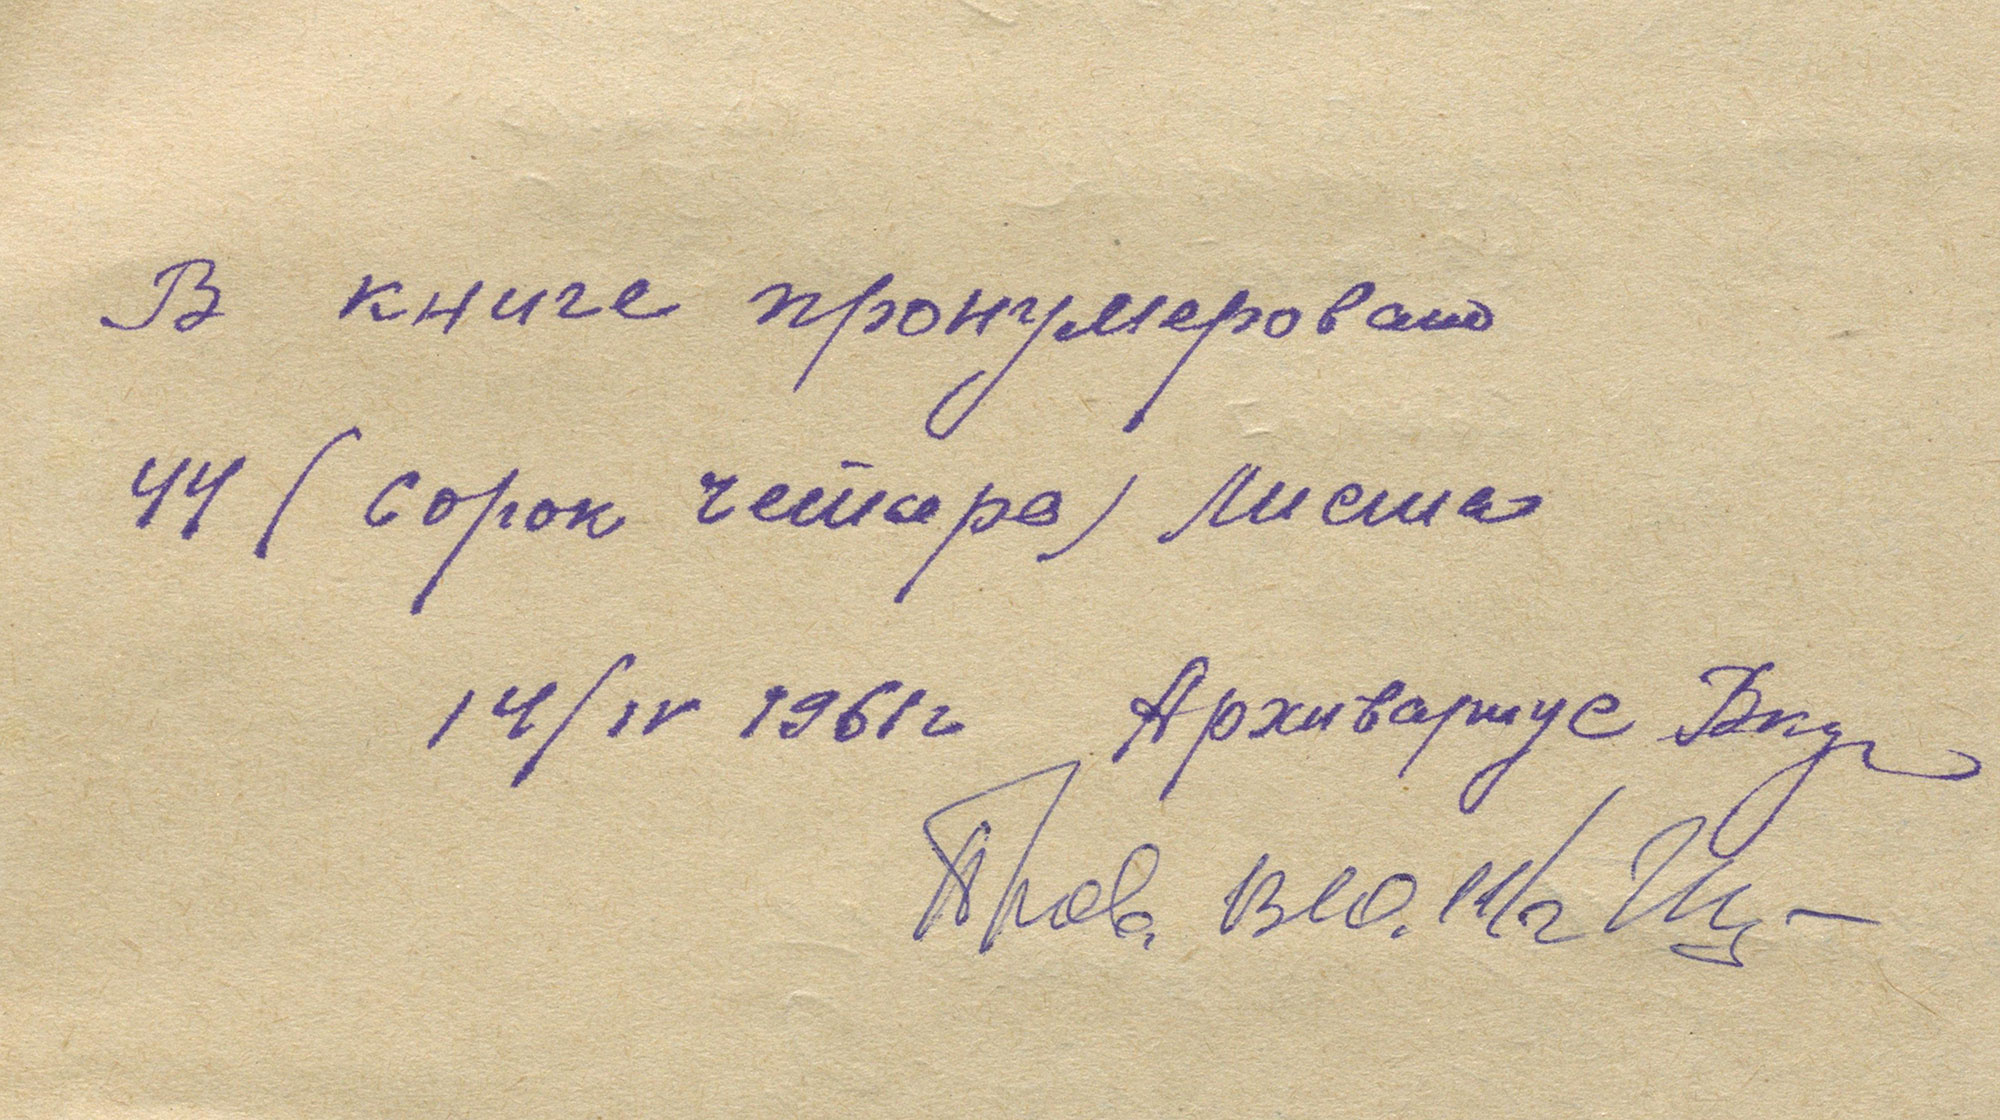 В книге пронумеровано
44 (сорок четыре) листа
14/IV 1961г Архивариус
Пров.